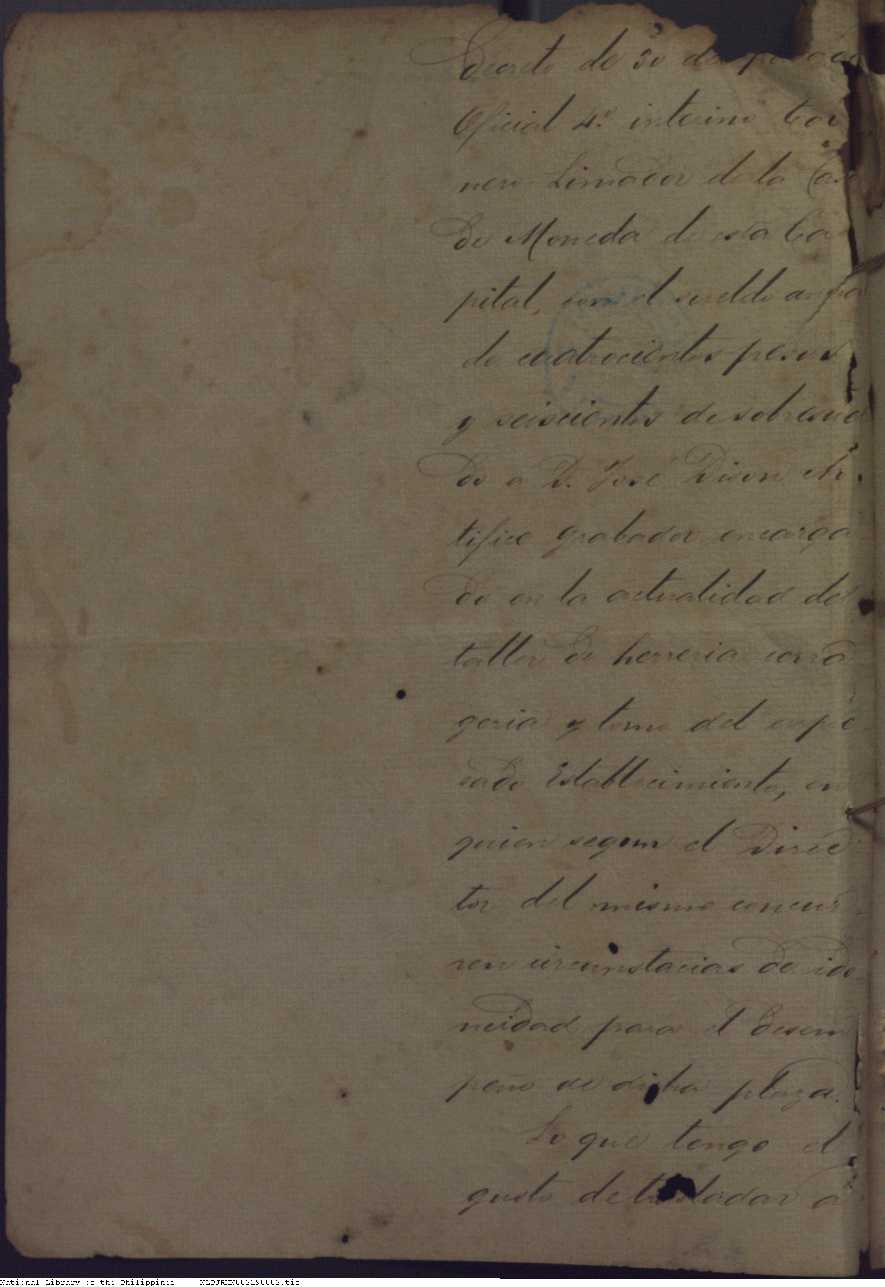 Decreto de 30 de
Oficial 4º. interino Tor
nero Limador de la Casa
de Moneda de esta Ca
pital, con el sueldo
de cuatrocientos pesos
y seiscientos de sobresuel
do a D. José Dison Ar
tifice grabador encarga
do en la actualidad del
taller de herreria cerra
geria y torno del expre
sado Establecimiento, en
quien segun el Direc
tor del mismo concur
ren circunstacias de ido
neidad para el desem
peño de dicha plaza.
Lo que tengo el
gusto de trasladar á
National Library of the Philippines